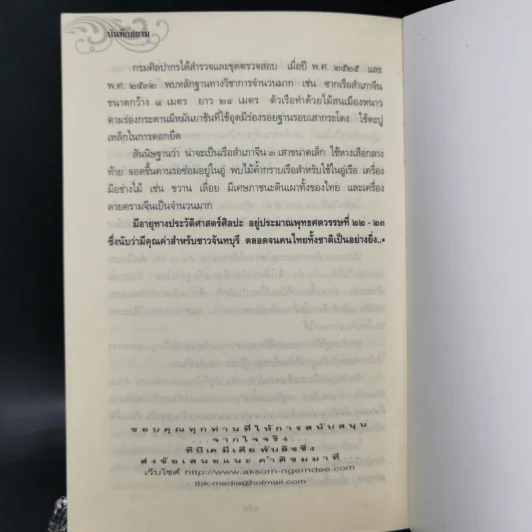 บันทึกสยาม
กรมศิลปากรได้สำรวจและขุดตรวจสอบ เมื่อปี พ.ศ. ๒๕๒๕ และ
พ.ศ. ๒๕๓๒ พบหลักฐานทางวิชาการจำนวนมาก เช่น ซากเรือสำเภาจีน
ขนาดกว้าง ๘ เมตร ยาว ๒๔ เมตร ตัวเรือทำด้วยไม้สนเมืองหนาว
ตามร่องกระดานมีหมันยาชันที่ใช้อุดมีร่องรอยฐานรอบเสากระโดง ใช้ตะปู
เหล็กในการตอกยึด
สันนิษฐานว่า น่าจะเป็นเรือสำเภาจีน ๓ เสาขนาดเล็ก ใช้หางเสือกลาง
ท้าย จอดขึ้นคานรอซ่อมอยู่ในอู่ พบไม้ค้ำกราบเรือสำหรับใช้ในอู่เรือ เครื่อง
มือช่างไม้ เช่น ขวาน เลื่อย มีเศษภาชนะดินเผาทั้งของไทย และเครื่อง
ลายครามจีนเป็นจำนวนมาก
มีอายุทางประวัติศาสตร์ศิลปะ อยู่ประมาณพุทธศตวรรษที่ ๒๒ - ๒๓
ซึ่งนับว่ามีคุณค่าสำหรับชาวจันทบุรี ตลอดจนคนไทยทั้งชาติเป็นอย่างยิ่ง..•
ขอบคุณทุกท่านที่ให้การสนับสนุน
...จากใจจริง...
ทีบีเค มีเดีย พับลิชชิ่ง
ส่งข้อเสนอแนะ คำติชมมาที่...
เว็บไซต์ http://www.aksorn-ngemdee.com
tbk-media@hotmail.com